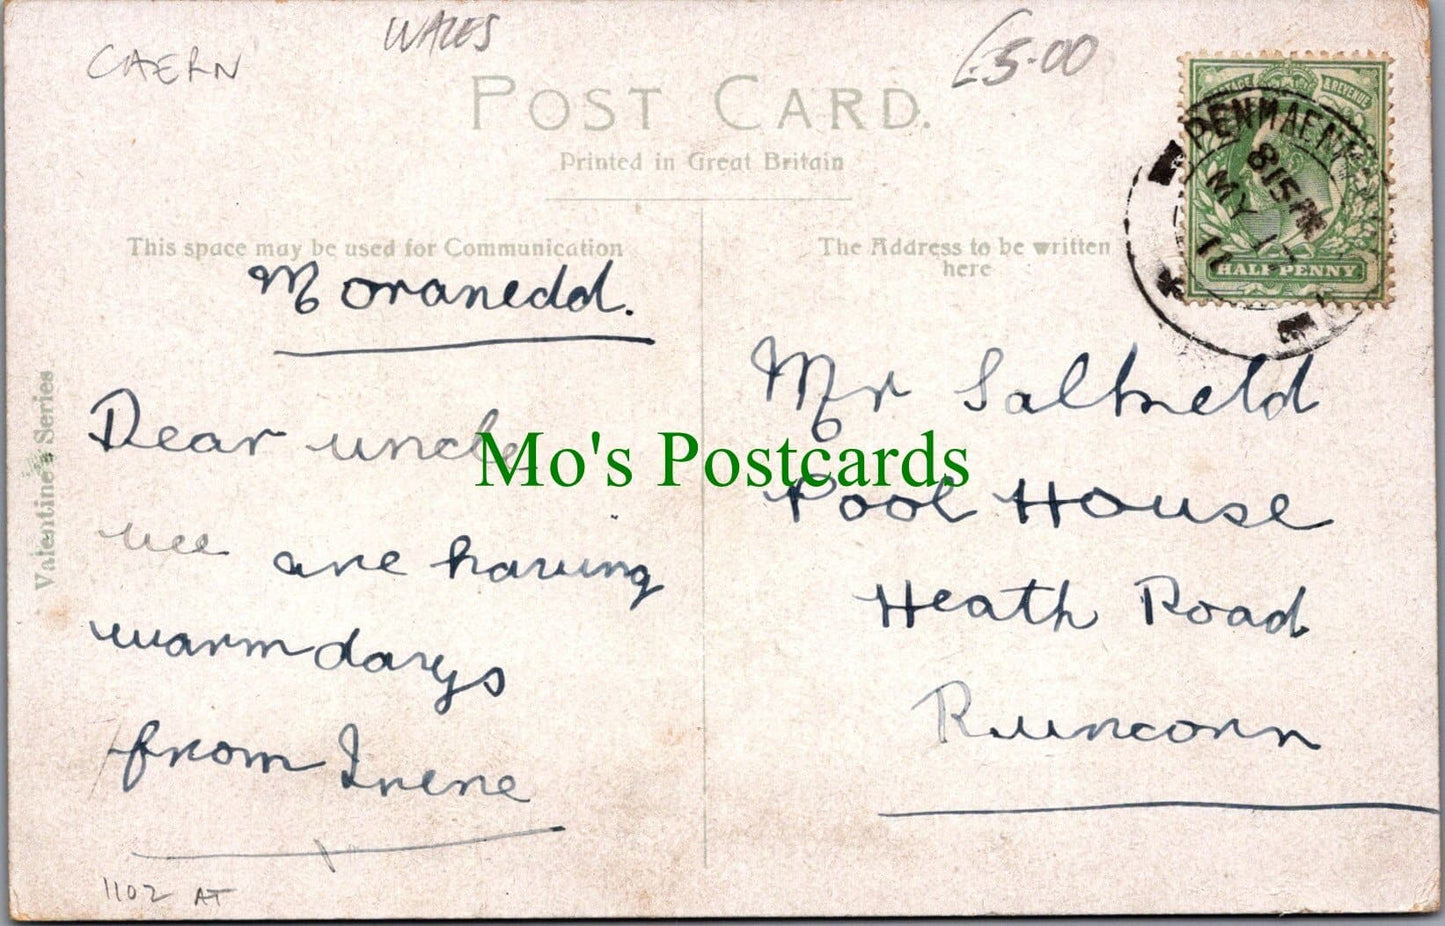 CAERN
WALES
£5.00
POST CARD.
Printed in Great Britain
This space may be used for Communication
The Address to be written
here
HALFPENNY
PENMAENM
8 15 PM
MY 17
11
Valentine's Series
Moranedd.
Dear uncle
wee are having
warm days
from Irene
Mr Salkield
Pool House
Heath Road
Runcorn
Mo's Postcards
1102 AT